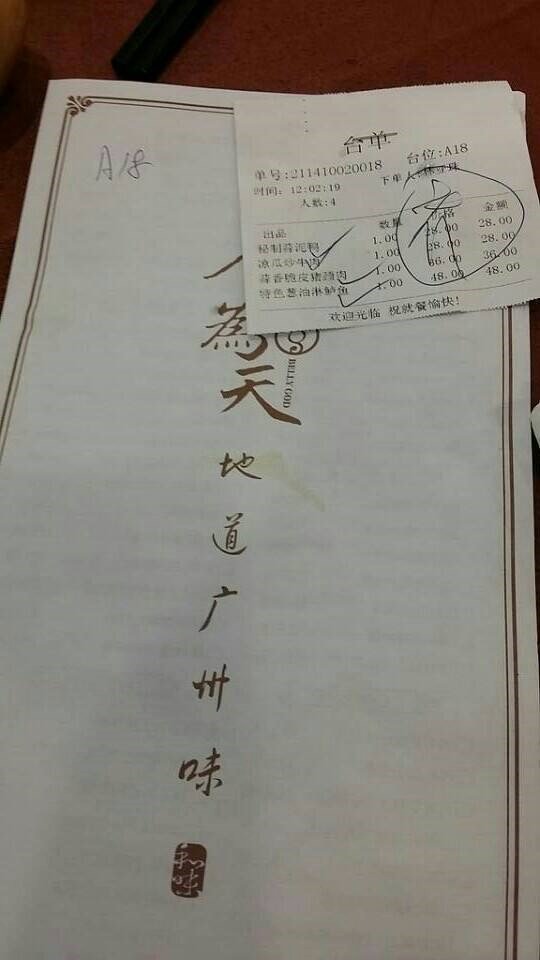 A18
台单
单号:211410020018 台位:A18
时间: 12:02:19 下单人
人数:4
出品 数量 价格 金额
秘制蒜泥鸭 1.00 28.00 28.00
凉瓜炒牛肉 1.00 28.00 28.00
蒜香脆皮猪颈肉 1.00 36.00 36.00
特色葱油淋鲈鱼 1.00 48.00 48.00
欢迎光临 祝就餐愉快!
為
天
BELLY GOD
地
道
广
州
味
和味